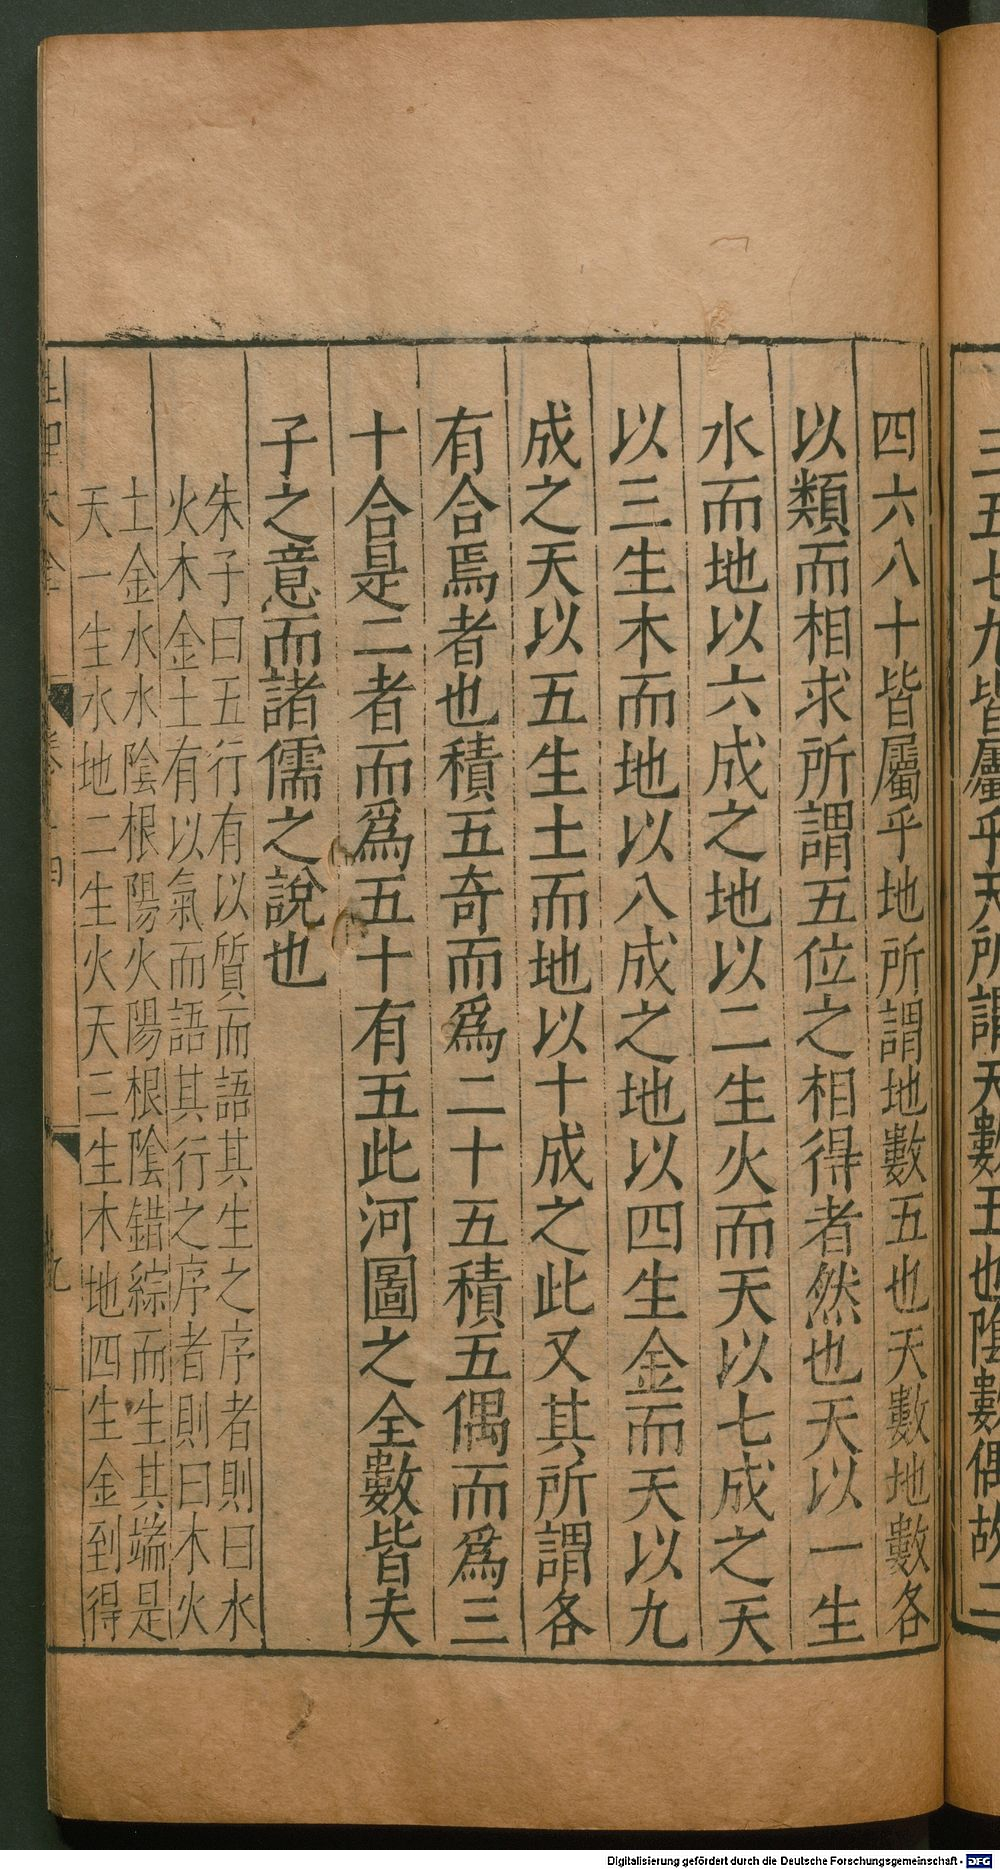 三五七九皆屬乎天所謂天數五也陰數偶故二
四六八十皆屬乎地所謂地數五也天數地數各
以類而相求所謂五位之相得者然也天以一生
水而地以六成之地以二生火而天以七成之天
以三生木而地以八成之地以四生金而天以九
成之天以五生土而地以十成之此又其所謂各
有合焉者也積五奇而爲二十五積五偶而爲三
十合是二者而爲五十有五此河圖之全數皆夫
子之意而諸儒之說也
朱子曰五行有以質而語其生之序者則曰水
火木金土有以氣而語其行之序者則曰木火
土金水水陰根陽火陽根陰錯綜而生其端是
天一生水地二生火天三生木地四生金到得
Digitalisierung gefördert durch die Deutsche Forschungsgemeinschaft - DFG